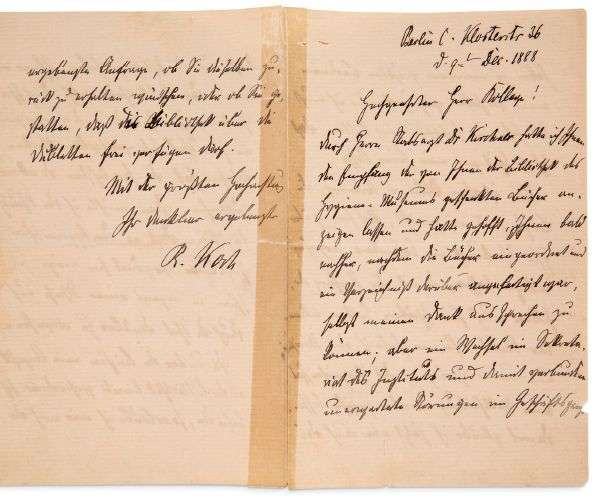 Berlin C. Klosterstr 36
d. 9t Dec. 1888
Hochgeehrter Herr College!
Durch Herrn Stabsarzt Dr Kirchner hatte ich Ihnen
den Empfang der von Ihnen der Bibliothek des
Hygiene-Museums geschenkten Bücher an-
zeigen lassen und hatte gehofft, Ihnen bald
nachher, nachdem die Bücher eingeordnet und
ein Verzeichniß darüber angefertigt war,
selbst meinen Dank aussprechen zu
können; aber ein Wechsel im Sekreta-
riat des Instituts und damit verbundene
unerwartete Störungen im Geschäftsgang
ergebenste Anfrage, ob Sie dieselben zu-
rück zu erhalten wünschen, oder ob Sie ge-
statten, daß die Bibliothek über die
Dubletten frei verfügen darf.
Mit der größten Hochachtung
Ihr dankbar ergebenster
R. Koch